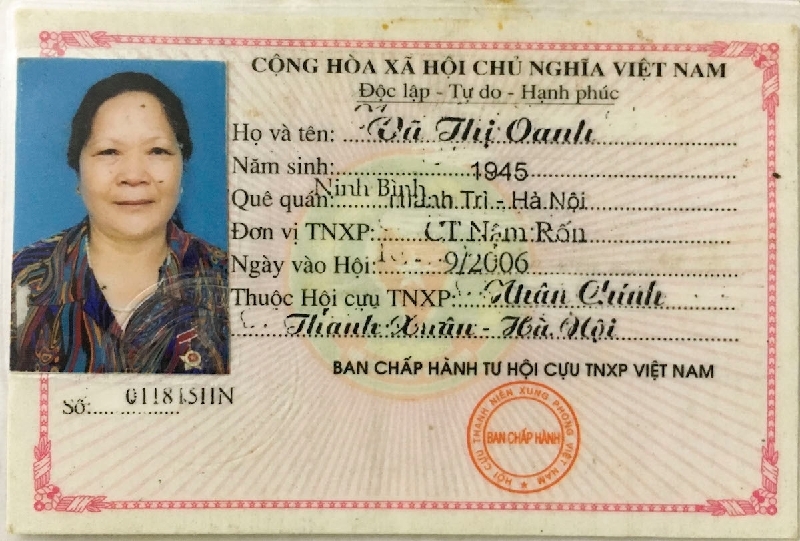 CỘNG HÒA XÃ HỘI CHỦ NGHĨA VIỆT NAM
Độc lập - Tự do - Hạnh phúc
Họ và tên: Thị Oanh
Năm sinh: 1945
Quê quán: Ninh Bình Trì - Hà Nội
Đơn vị TNXP: CT Nậm Rốn
Ngày vào Hội: 9/2006
Thuộc Hội cựu TNXP: Nhân Chính
Thanh Xuân - Hà Nội
BAN CHẤP HÀNH TƯ HỘI CỰU TNXP VIỆT NAM
Số:
HỘI CỰU THANH NIÊN XUNG PHONG VIỆT NAM
BAN CHẤP HÀNH